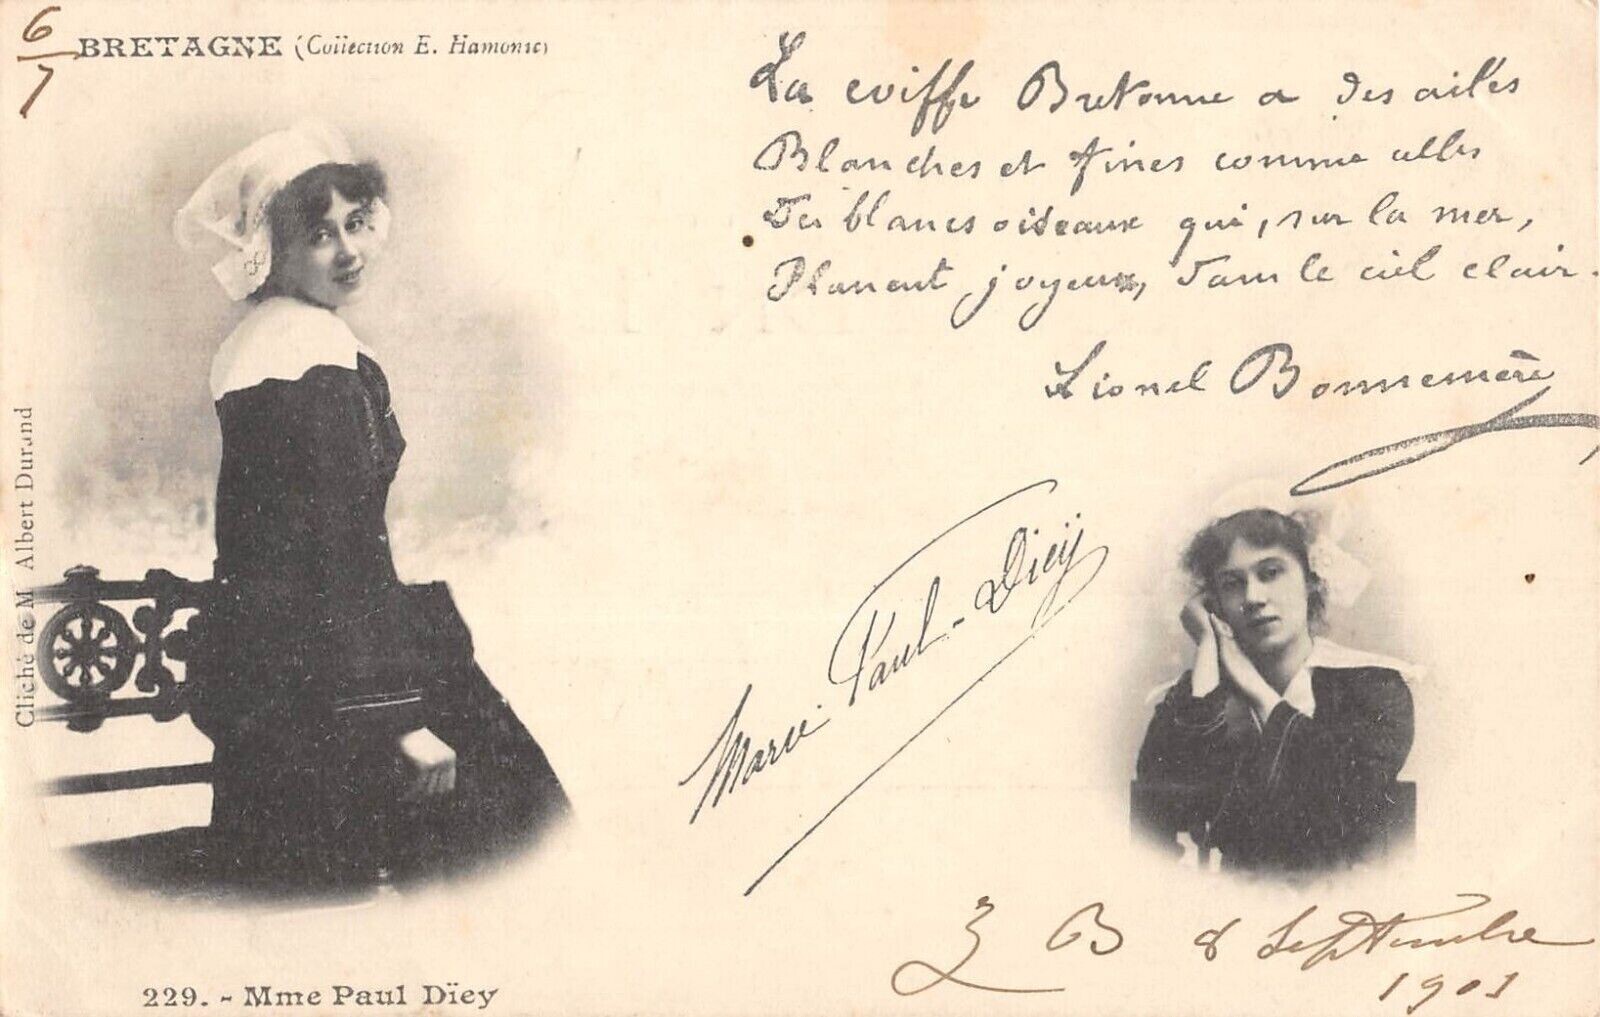 6
7
BRETAGNE (Collection E. Hamonic)
La coiffe Bretonne a des ailes
Blanches et fines comme celles
Des blancs oiseaux qui, sur la mer,
Planent joyeux, dans le ciel clair.
Lionel Bonnemère
Cliché de M Albert Durand
Marie Paul-Dieÿ
B 8 Septembre
1901
229. - Mme Paul Dïey